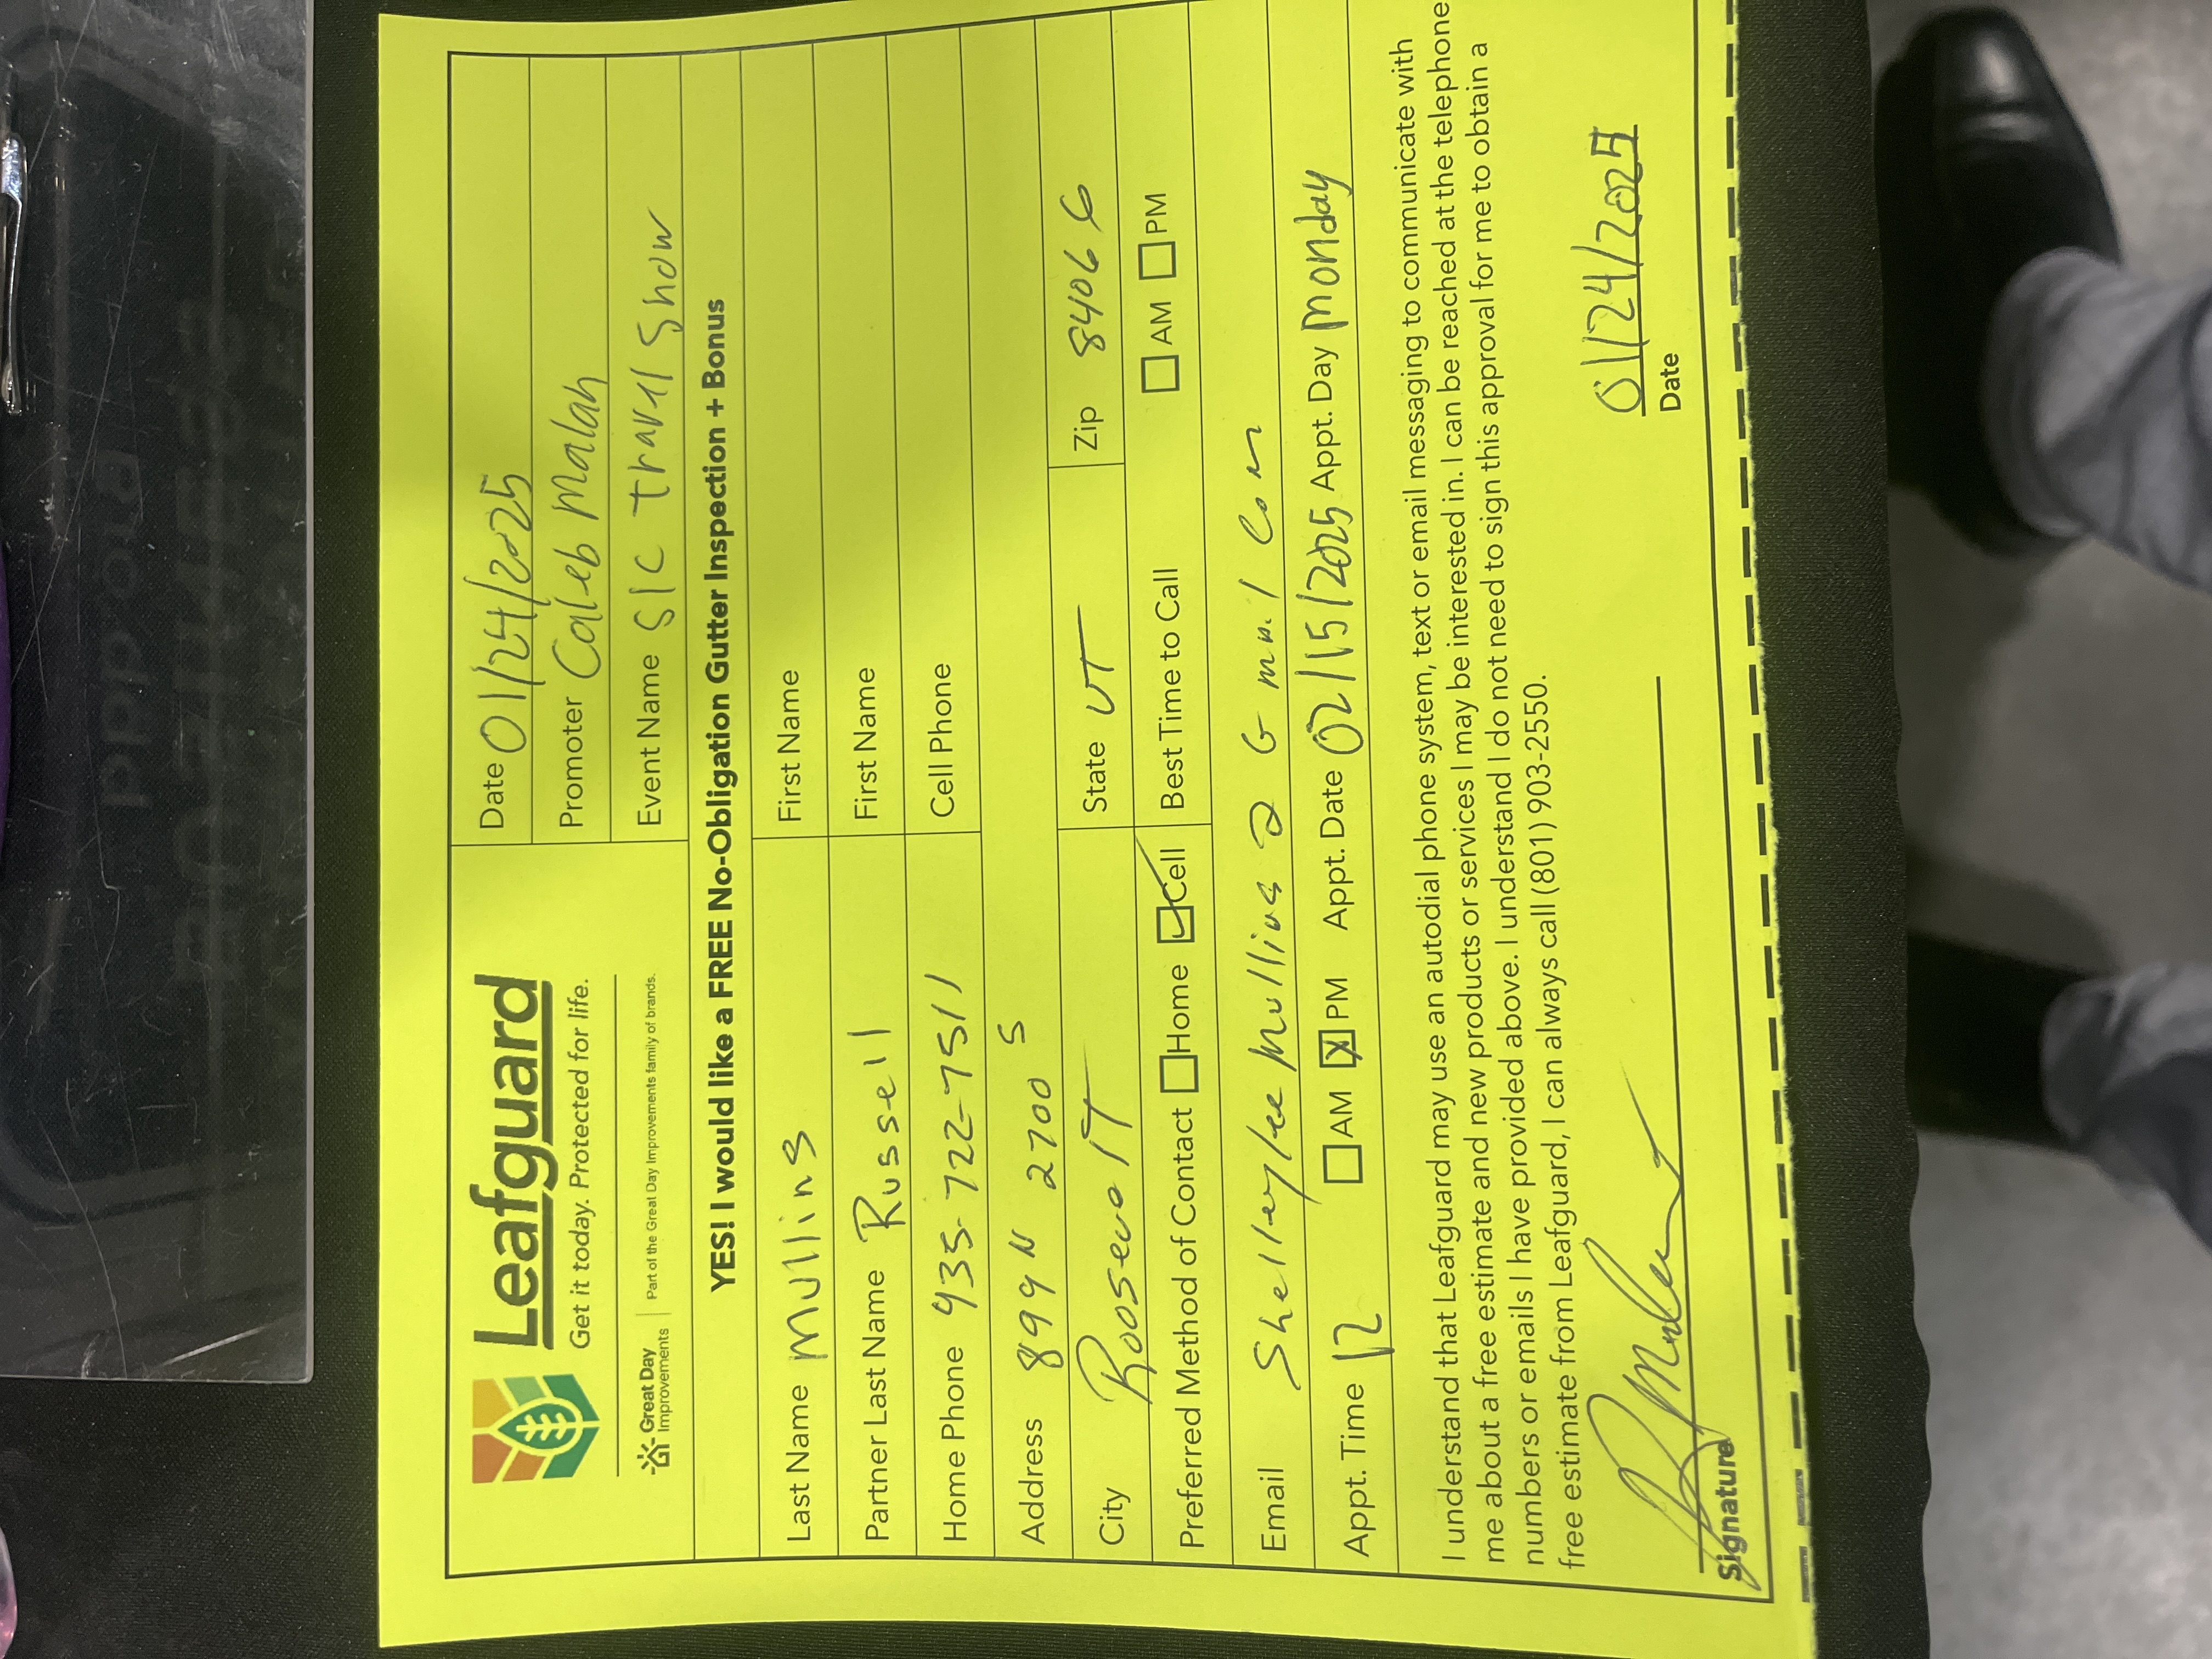 Leafguard
Get it today. Protected for life.
Great Day Improvements
Part of the Great Day Improvements family of brands.
Date 01/24/2025
Promoter Caleb Malan
Event Name SLC Travel Show
YES! I would like a FREE No-Obligation Gutter Inspection + Bonus
Last Name Mullins
First Name
Partner Last Name Russell
First Name
Home Phone 435-722-7511
Cell Phone
Address 899 N 2700 S
City Roosevelt
State UT
Zip 84066
Preferred Method of Contact Home Cell
Best Time to Call AM PM
Email Shelleylee Mullins @ Gmail Com
Appt. Time 12 AM PM Appt. Date 02/15/2025 Appt. Day Monday
I understand that Leafguard may use an autodial phone system, text or email messaging to communicate with
me about a free estimate and new products or services I may be interested in. I can be reached at the telephone
numbers or emails I have provided above. I understand I do not need to sign this approval for me to obtain a
free estimate from Leafguard, I can always call (801) 903-2550.
01/24/2025
Signature
Date